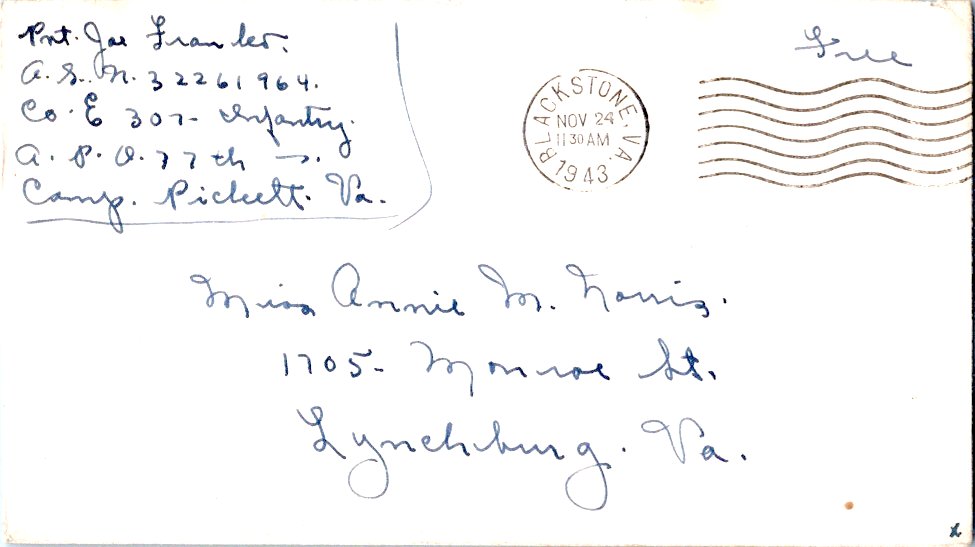 Pvt. Joe
A.S.N. 32261964.
Co. E 307- Infantry.
A.P.O. 77th
Camp. Pickett. Va.
Free
BLACKSTONE, VA.
NOV 24
11 30 AM
1943
Miss Annie M. Norris.
1705- Monroe St.
Lynchburg. Va.